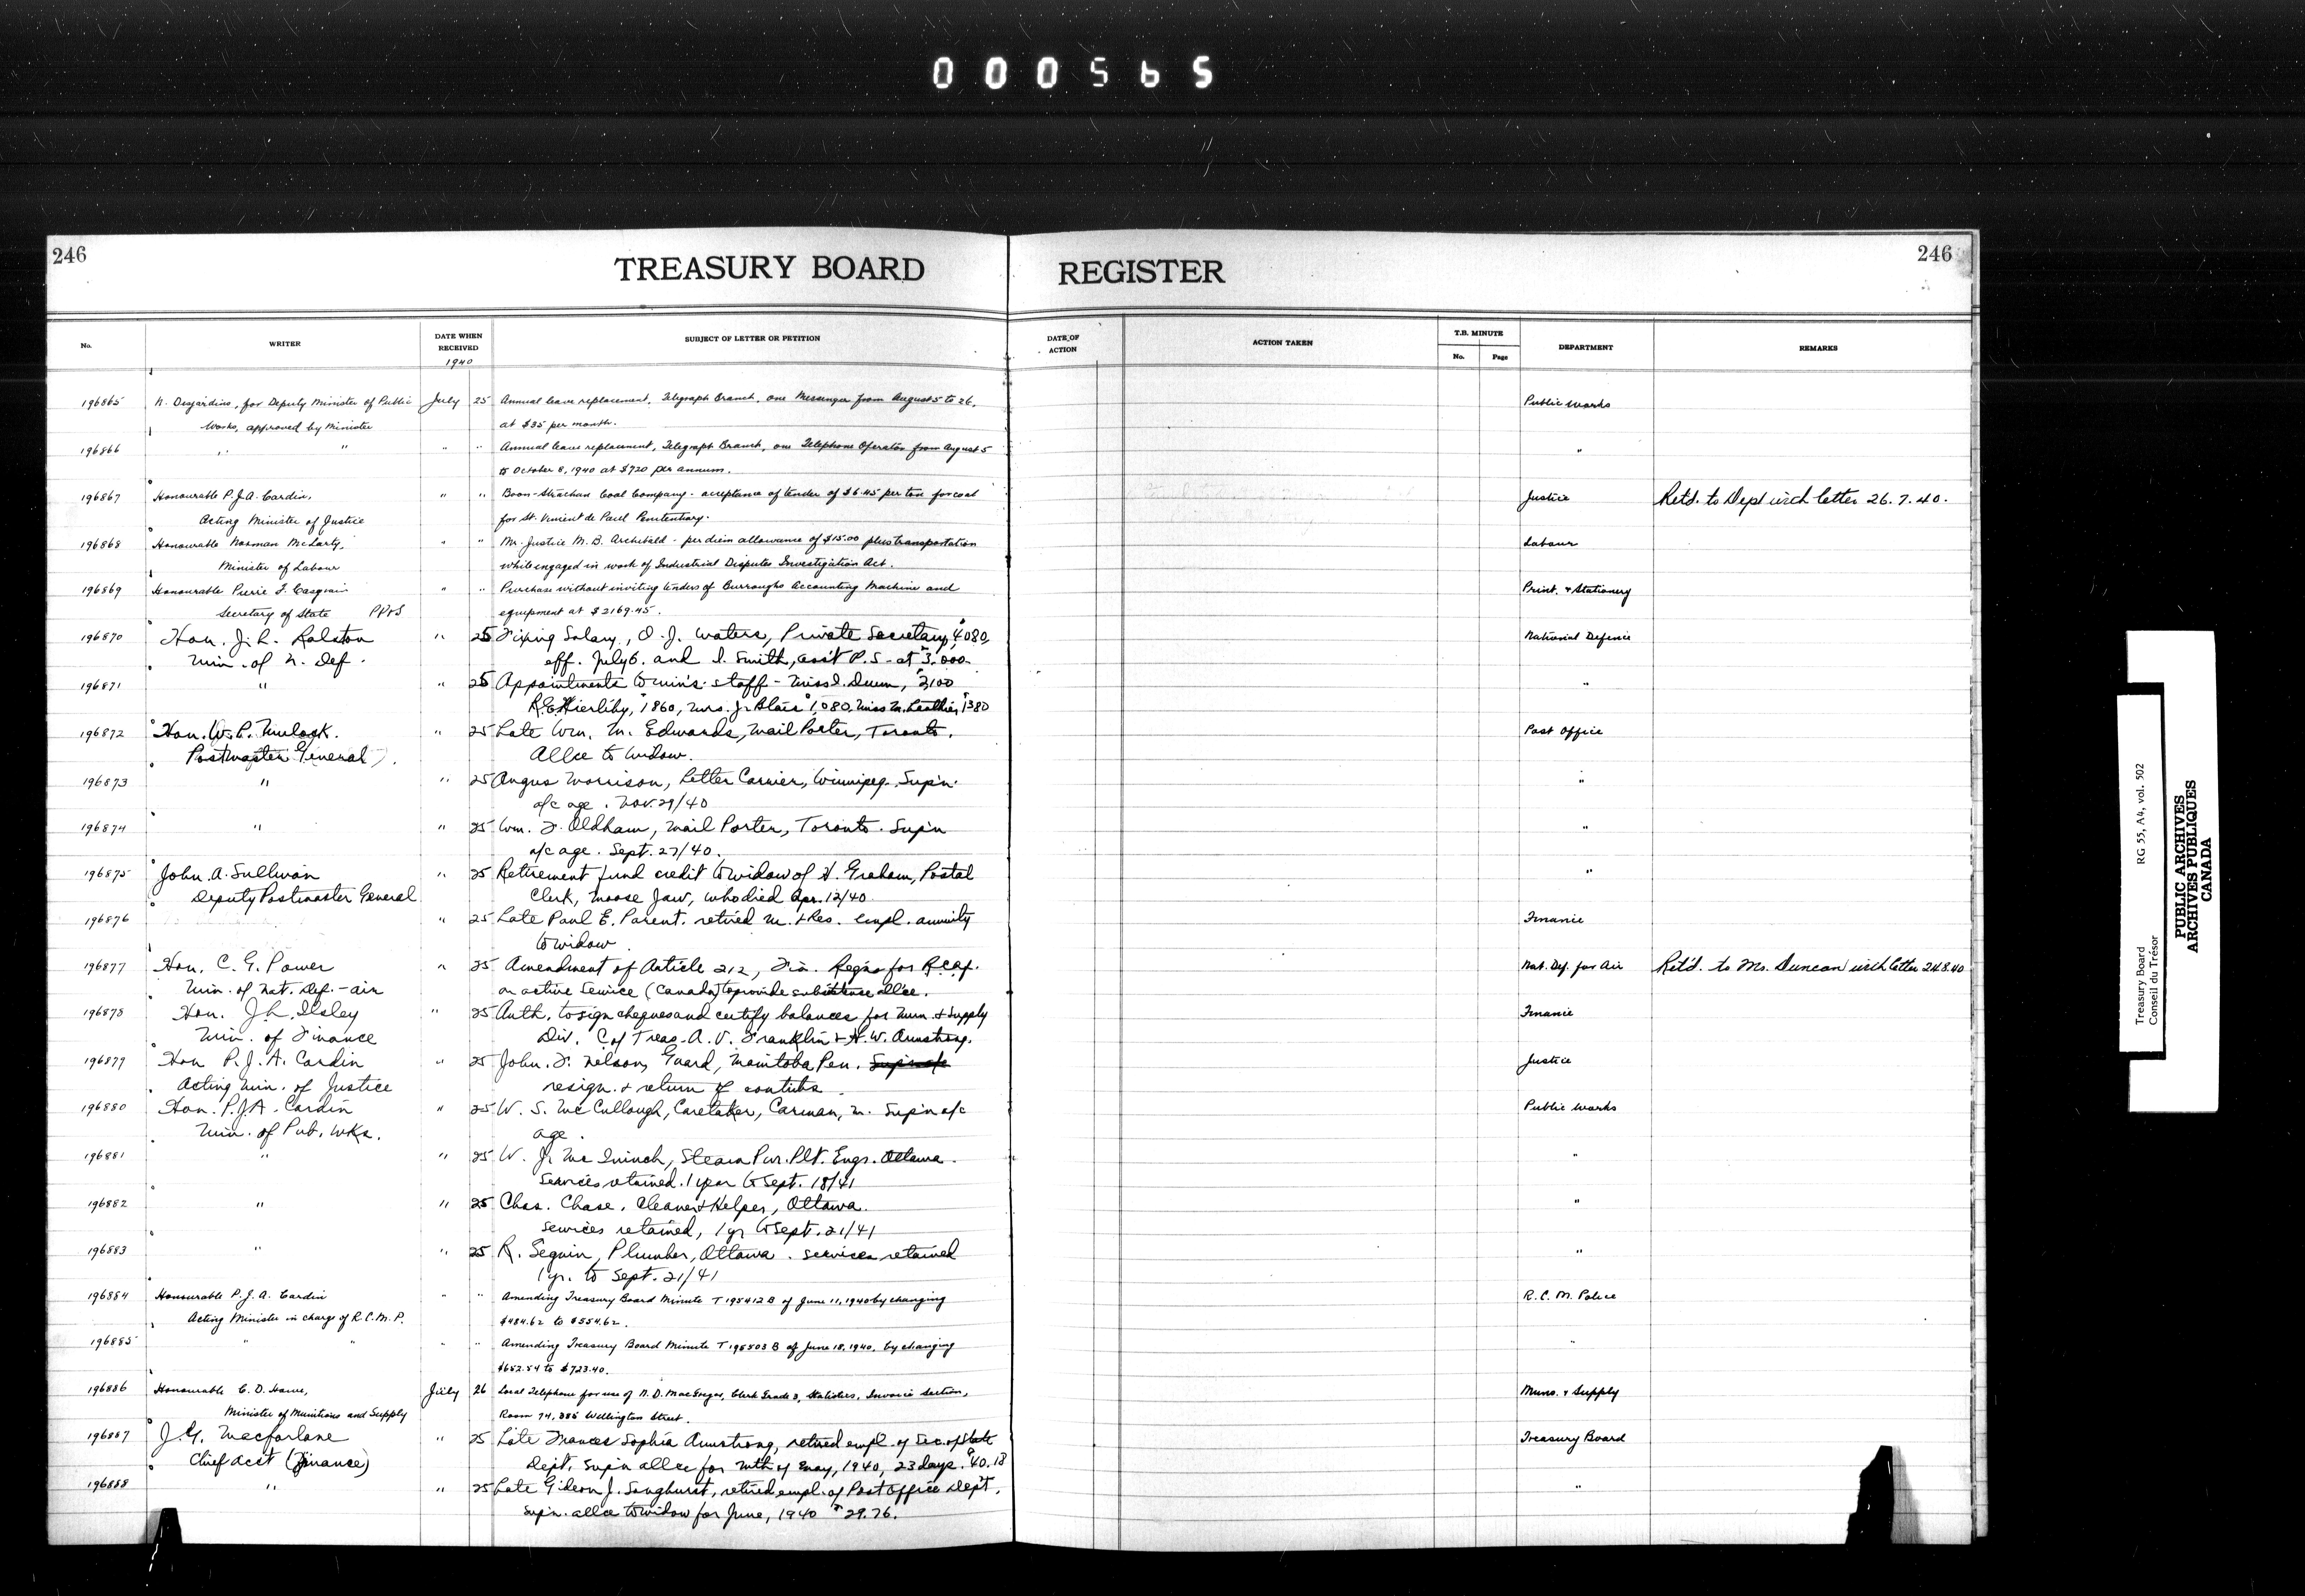 000565
246
TREASURY BOARD REGISTER
246
No. WRITER DATE WHEN RECEIVED SUBJECT OF LETTER OR PETITION DATE OF ACTION ACTION TAKEN T.B. MINUTE No. Page DEPARTMENT REMARKS
1940
196865 N. Desjardins, for Deputy Minister of Public July 25 Annual leave replacement, Telegraph Branch, one Messenger from August 5 to 26, Public Works
Works, approved by Minister at $35 per month.
196866 " " " " Annual leave replacement, Telegraph Branch, one Telephone Operator from August 5 "
to October 8, 1940 at $720 per annum.
196867 Honourable P.J.A. Cardin, " " Boon-Strachan Coal Company - acceptance of tender of $6.45 per ton for coal Justice Ret'd. to Dept with letter 26.7.40.
Acting Minister of Justice for St. Vincent de Paul Penitentiary.
196868 Honourable Norman McLarty, " " Mr. Justice M. B. Archibald - per diem allowance of $15.00 plus transportation Labour
Minister of Labour while engaged in work of Industrial Disputes Investigation Act.
196869 Honourable Pierre F. Casgrain " " Purchase without inviting tenders of Burroughs Accounting Machine and Print. & Stationery
Secretary of State PP&S equipment at $2169.45.
196870 Hon. J. L. Ralston " 25 Fixing Salary, O. J. Waters, Private Secretary, $4080, National Defence
Min. of N. Def. eff. July 6. and I. Smith, ass't P.S. at $3,000.
196871 " " 25 Appointments to min's. staff - Miss I. Dunn, $2,100 "
1860, Mrs. J. Blair $1,080, Miss M. $1380
196872 Hon. W. P. Mulock. " 25 Late Wm. M. Edwards, Mail Porter, Toronto. Post Office
Postmaster General. Allce to widow.
196873 " " 25 Angus Morrison, Letter Carrier, Winnipeg. Sup'n. "
a/c age. Nov. 29/40
196874 " " 25 Wm. F. Oldham, Mail Porter, Toronto. Sup'n "
a/c age. Sept. 27/40.
196875 John. A. Sullivan " 25 Retirement fund credit to widow of H. Graham, Postal "
Deputy Postmaster General Clerk, Moose Jaw, who died Apr. 12/40.
196876 " 25 Late Paul E. Parent. retired M. & Res. empl. annuity Finance
to widow.
196877 Hon. C. G. Power " 25 Amendment of Article 212, Fin. Reg'ns for R.C.A.F. Nat. Def. for Air Ret'd. to Mr. Duncan with letter 24.8.40
Min. of Nat. Def. - air on active Service (Canada) to provide subsistence allce.
196878 Hon. J. L. Ilsley " 25 Auth. to sign cheques and certify balances for Mun. & Supply Finance
Min. of Finance Div. C of Treas. A. V. Franklin & H. W. Armstrong.
196879 Hon P. J. A. Cardin " 25 John. F. Nelson, Guard, Manitoba Pen. Justice
Acting Min. of Justice resign. & return of contribs.
196880 Hon. P.J.A. Cardin " 25 W. S. McCullough, Caretaker, Carman, M. Sup'n a/c Public Works
Min. of Pub. Wks. age.
196881 " " 25 W. J. McIninch, Steam Pwr. Plt. Engr. Ottawa. "
Services retained. 1 year to Sept. 18/41
196882 " " 25 Chas. Chase, Cleaner & Helper, Ottawa. "
Services retained, 1 yr to Sept. 21/41
196883 " " 25 R. Seguin, Plumber, Ottawa. services retained "
1 yr. to Sept. 21/41
196884 Honourable P. J. A. Cardin " " Amending Treasury Board Minute T 195412 B of June 11, 1940 by changing R. C. M. Police
Acting Minister in charge of R.C.M.P. $484.62 to $554.62.
196885 " " " " Amending Treasury Board Minute T 195503 B of June 18, 1940, by changing "
$652.54 to $723.40.
196886 Honourable C. D. Howe, July 26 Local Telephone for use of N. D. MacGregor, Clerk Grade 3, Statistics, Invoice Section, Muns. & Supply
Minister of Munitions and Supply Room 74, 385 Wellington Street.
196887 J. G. Macfarlane " 25 Late Frances Sophia Armstrong, retired empl. of Sec. of State Treasury Board
Chief acct (Finance) Dept. Sup'n allce for mth of May, 1940, 23 days. $40.18
196888 " " 25 Late Gideon J. Songhurst, retired empl. of Post Office Dept. "
Sup'n. allce to widow for June, 1940 $29.76.
Treasury Board RG 55, A4, vol. 502
Conseil du Trésor
PUBLIC ARCHIVES
ARCHIVES PUBLIQUES
CANADA